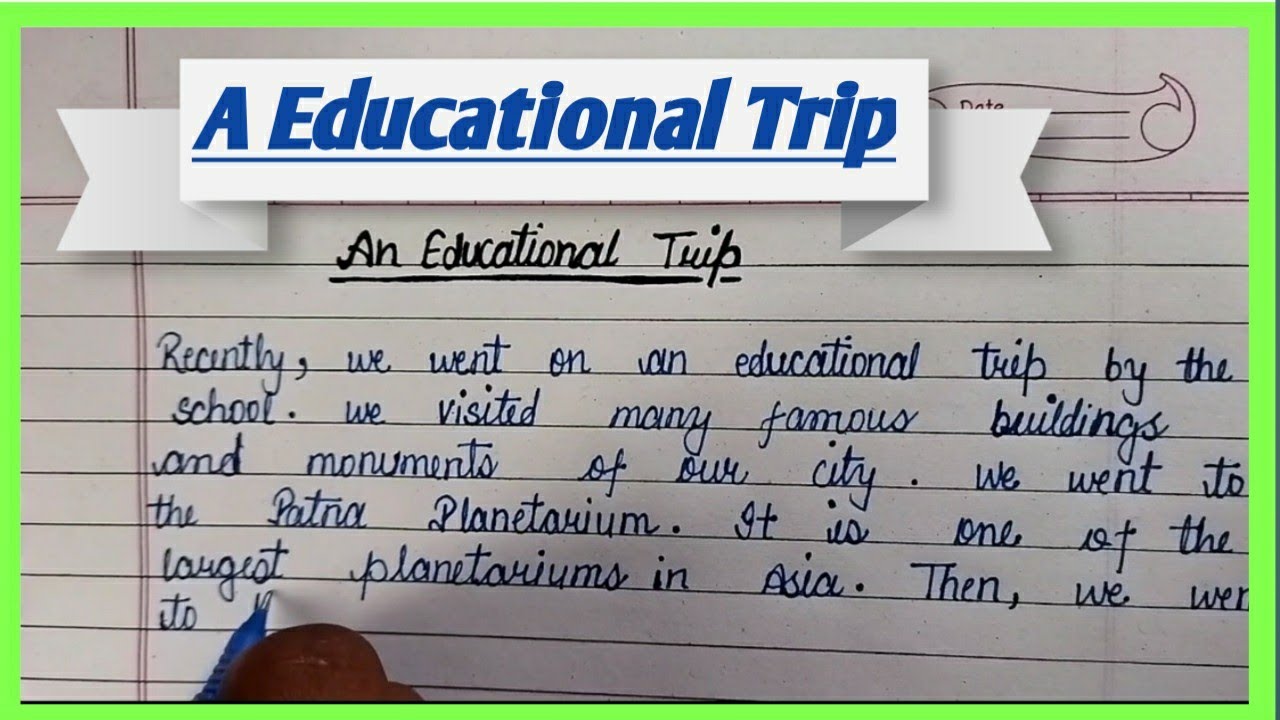 A Educational Trip
Date
An Educational Trip
Recently, we went on an educational trip by the
school. we visited many famous buildings
and monuments of our city. We went to
the Patna Planetarium. It is one of the
largest planetariums in Asia. Then, we wen
to